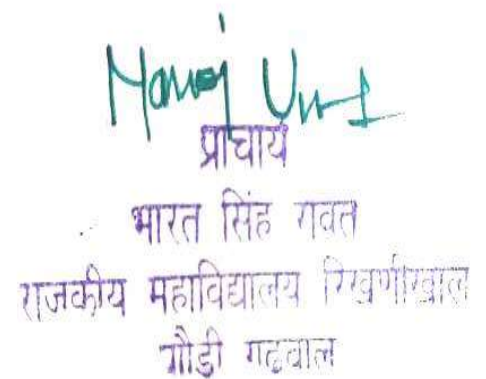 Manoj
प्राचार्य
भारत सिंह रावत
राजकीय महाविद्यालय रिखणीखाल
पौडी गढवाल